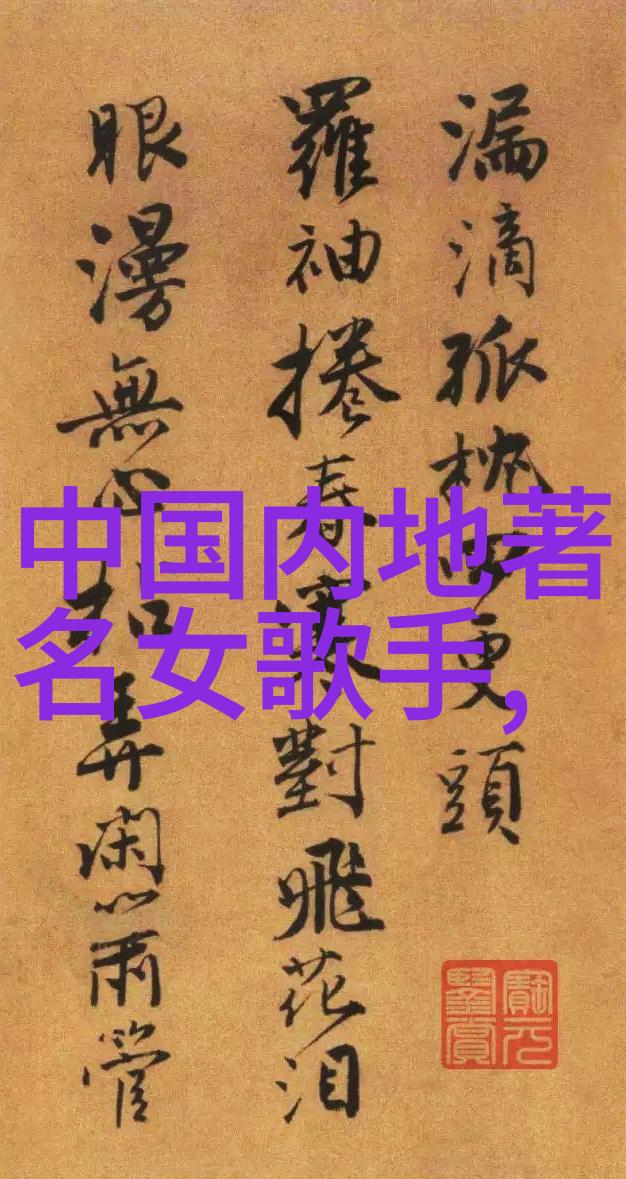 漏滴孤枕更頭
羅袖捲春寒對飛花泪
眼漫無心弄閑管
中国内地著
名女歌手,